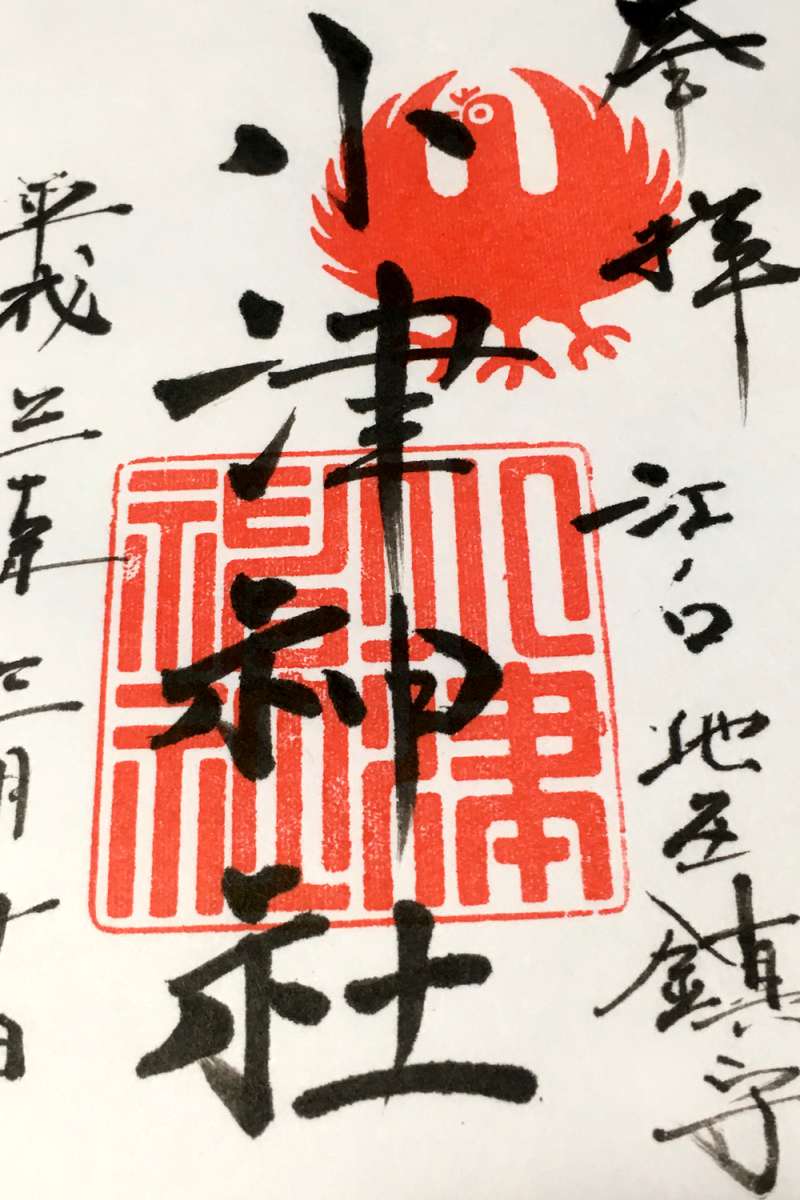 奉拝　江ノ口地区鎮守
小津神社
平成三十年三月十日
小津
神社